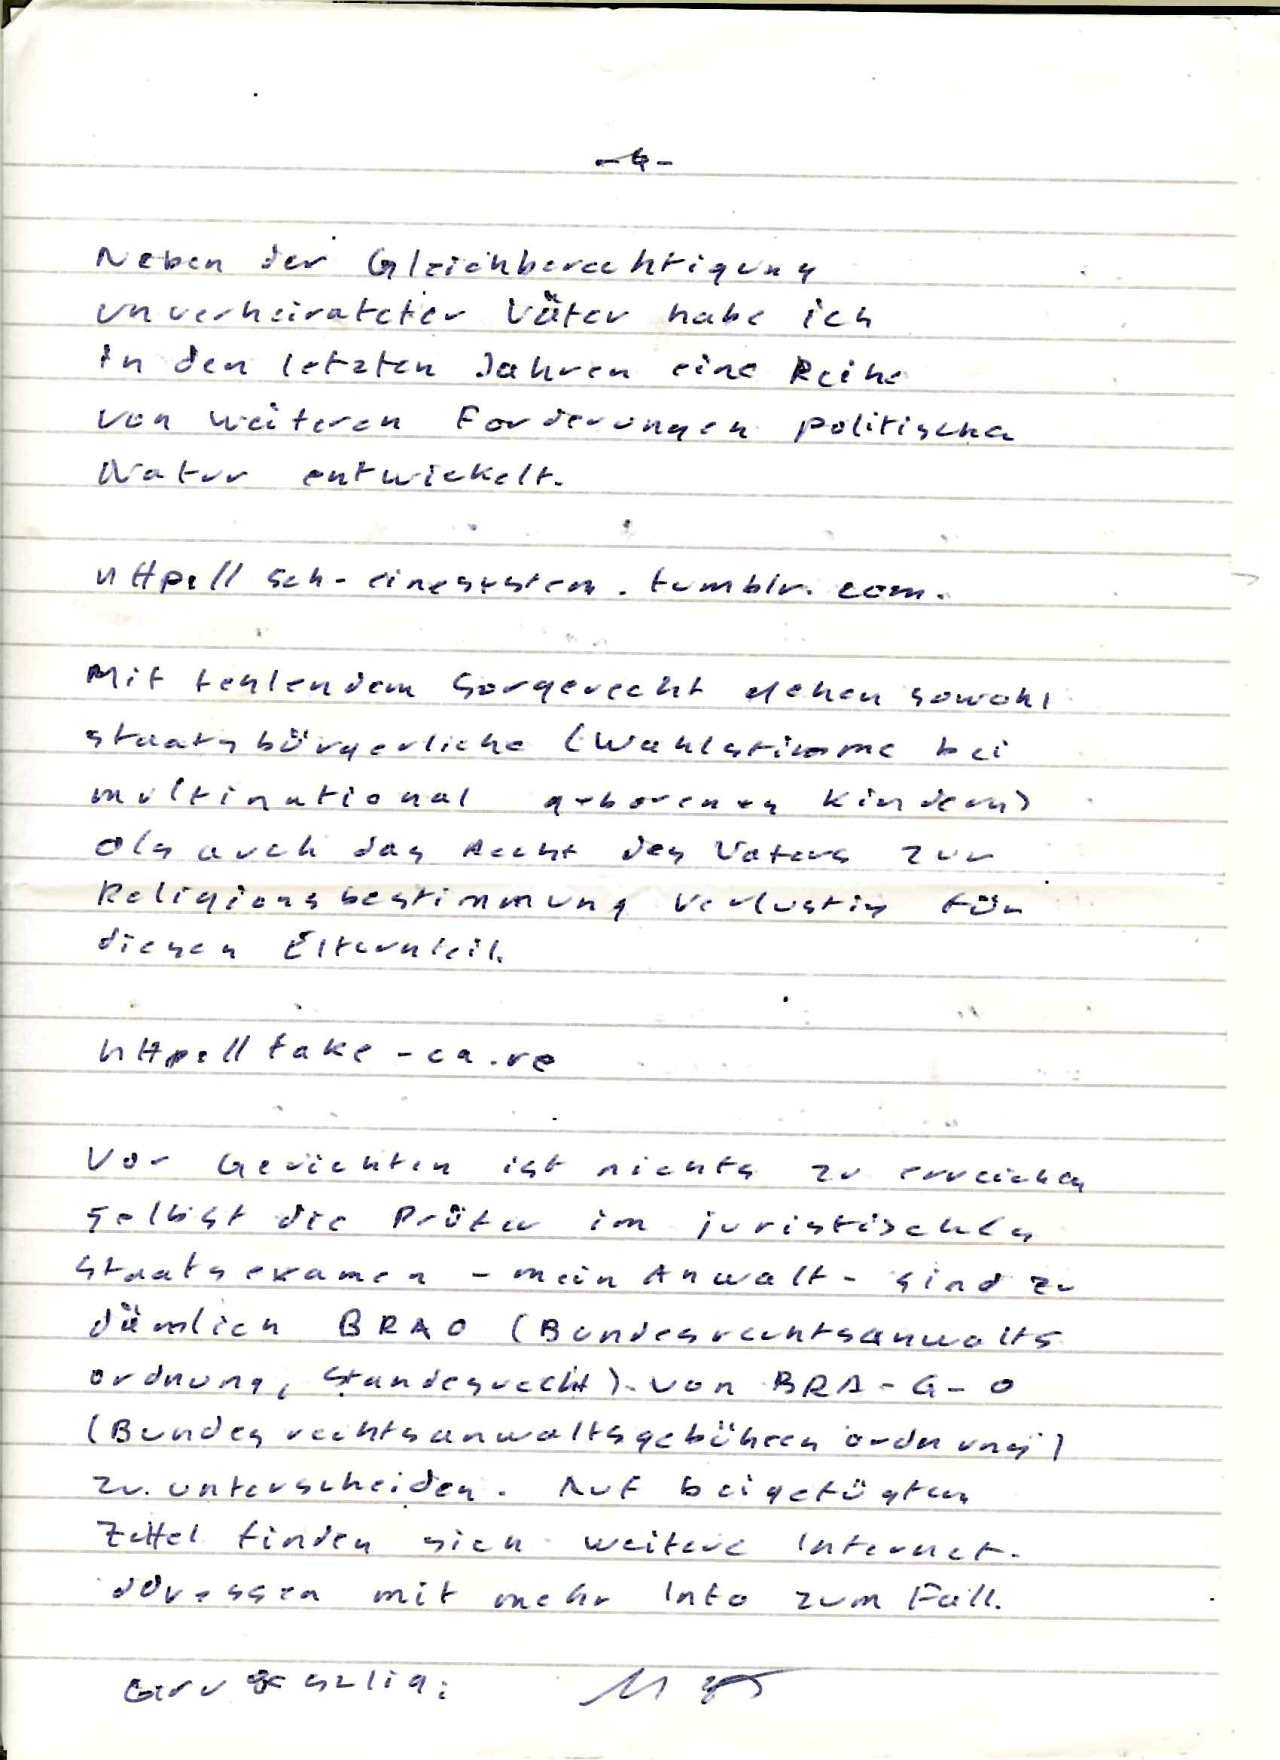 -4-
Neben der Gleichberechtigung
unverheirateter Väter habe ich
in den letzten Jahren eine Reihe
von weiteren Forderungen politischer
Natur entwickelt.
http://sch-einesystem.tumblr.com.
Mit fehlendem Sorgerecht gehen sowohl
staatsbürgerliche (Wahlstimme bei
multinational geborenen Kindern)
als auch das Recht des Vaters zur
Religionsbestimmung verlustig für
diesen Elternteil.
http://take-ca.re
Vor Gerichten ist nichts zu erreichen
selbst die Prüfer im juristischen
Staatsexamen - mein Anwalt - sind zu
dämlich BRAO (Bundesrechtsanwalts
ordnung, Standesrecht). von BRA-G-O
(Bundesrechtsanwaltsgebührenordnung)
zu unterscheiden. Auf beigefügten
Zettel finden sich weitere Internet-
adressen mit mehr Info zum Fall.